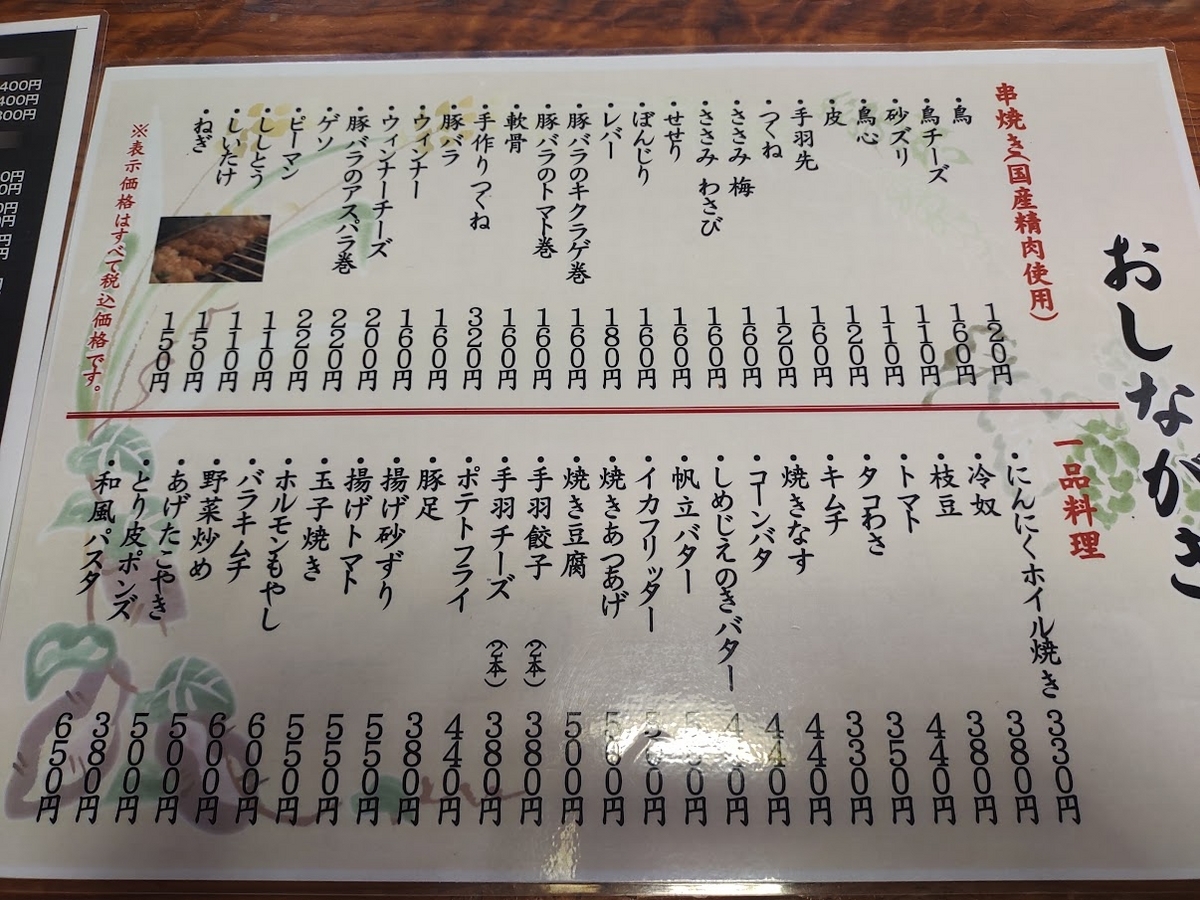 おしながき
串焼き(国産精肉使用)
・鳥 120円
・鳥チーズ 160円
・砂ズリ 110円
・鳥心 110円
・皮 120円
・手羽先 160円
・つくね 120円
・ささみ 梅 160円
・ささみ わさび 160円
・せせり 160円
・ぼんじり 160円
・レバー 180円
・豚バラのキクラゲ巻 160円
・豚バラのトマト巻 160円
・軟骨 160円
・手作りつくね 320円
・豚バラ 160円
・ウィンナー 160円
・ウィンナーチーズ 200円
・豚バラのアスパラ巻 220円
・ゲソ 220円
・ピーマン 110円
・ししとう 110円
・しいたけ 150円
・ねぎ 150円
※表示価格はすべて税込価格です。
一品料理
・にんにくホイル焼き 330円
・冷奴 380円
・枝豆 380円
・トマト 440円
・タコわさ 350円
・キムチ 330円
・焼きなす 440円
・コーンバタ 440円
・しめじえのきバター 440円
・帆立バター
・イカフリッター
・焼きあつあげ
・焼き豆腐 500円
・手羽餃子(2本) 380円
・手羽チーズ(2本) 380円
・ポテトフライ 440円
・豚足 380円
・揚げ砂ずり 550円
・揚げトマト 550円
・玉子焼き 550円
・ホルモンもやし 600円
・バラキムチ 600円
・野菜炒め 500円
・あげたこやき 500円
・とり皮ポンズ 380円
・和風パスタ 650円
400円
400円